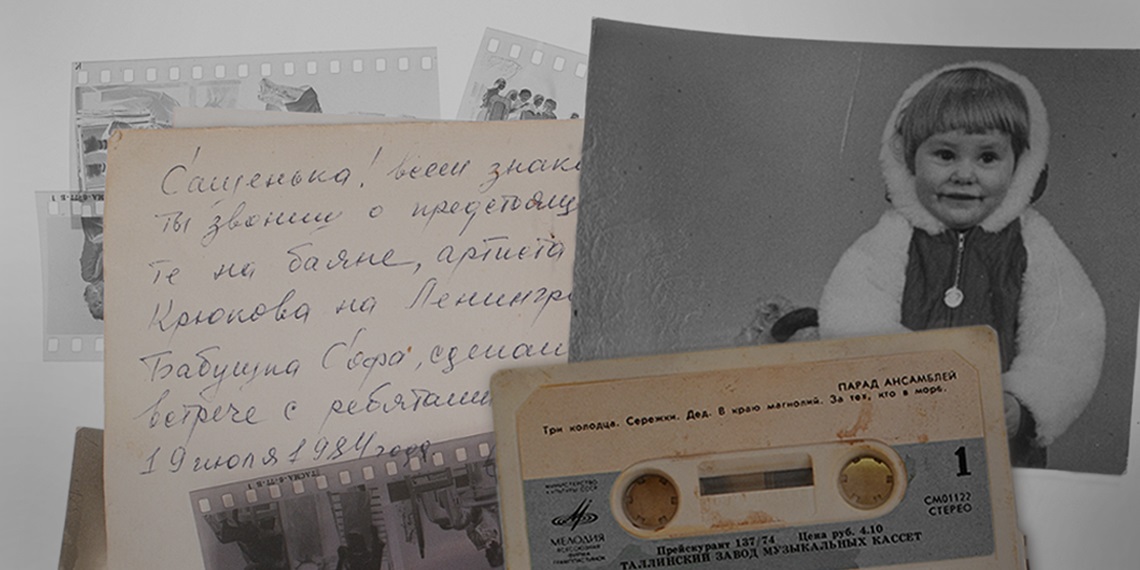 Сашенька! всем знак
ты звонил о предстоящ
те на баяне, артиста
Крюкова на Ленингр
Бабушка Софа, сделай
встрече с ребятами
19 июля 1984 года
ТАСМА-6-ТГ-В 1
ПАРАД АНСАМБЛЕЙ
Три колодца. Сережки. Дед. В краю магнолий. За тех, кто в море.
1
МИНИСТЕРСТВО
КУЛЬТУРЫ СССР
СМ01122
СТЕРЕО
МЕЛОДИЯ
ВСЕСОЮЗНАЯ
ФИРМА
ГРАМПЛАСТИНОК
Прейскурант 137/74 Цена руб. 4.10
ТАЛЛИНСКИЙ ЗАВОД МУЗЫКАЛЬНЫХ КАССЕТ